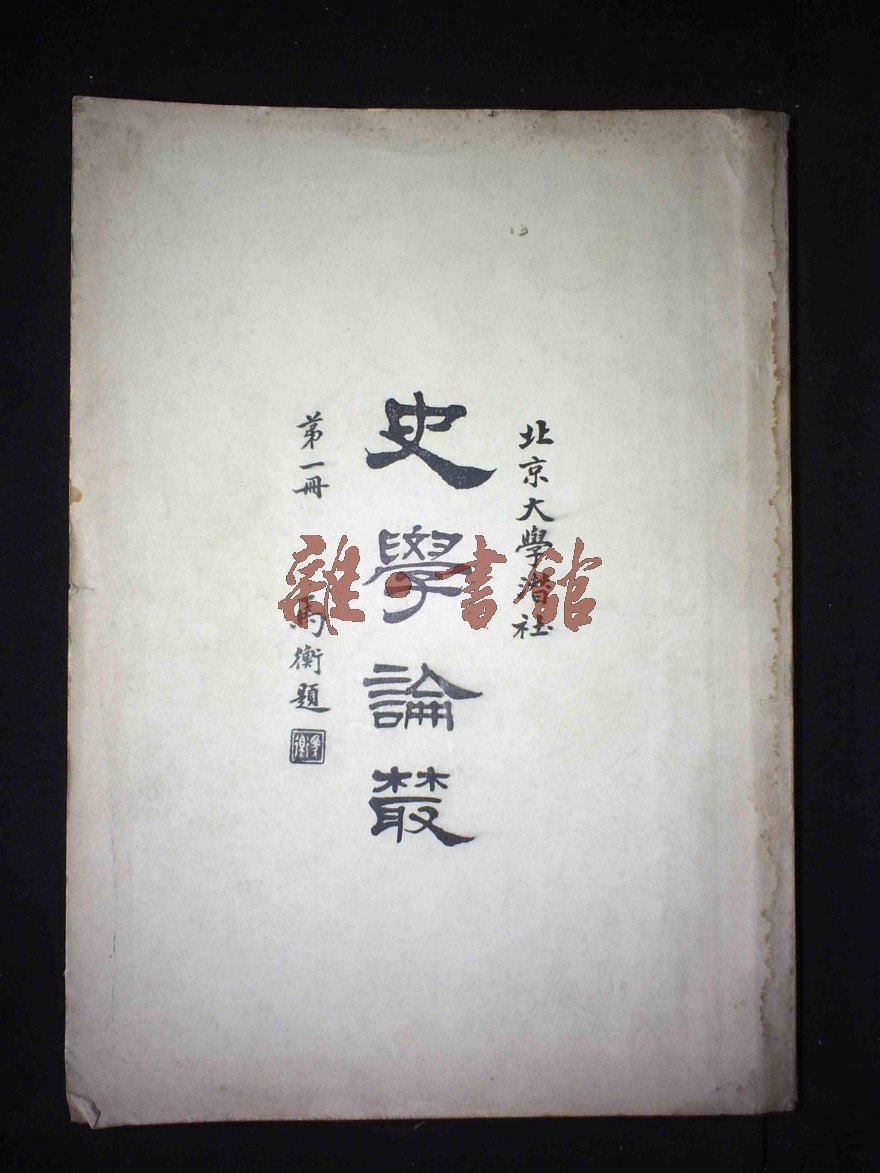 北京大學潛社
史學論叢
第一冊
馬衡題
雜·書館